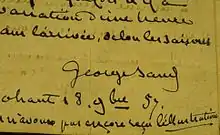 variation d'une heure
dans l'arrivée, selon les saisons
George Sand
ohant 18. 9bre 57.
n'avons pas encore reçu l'Illustration